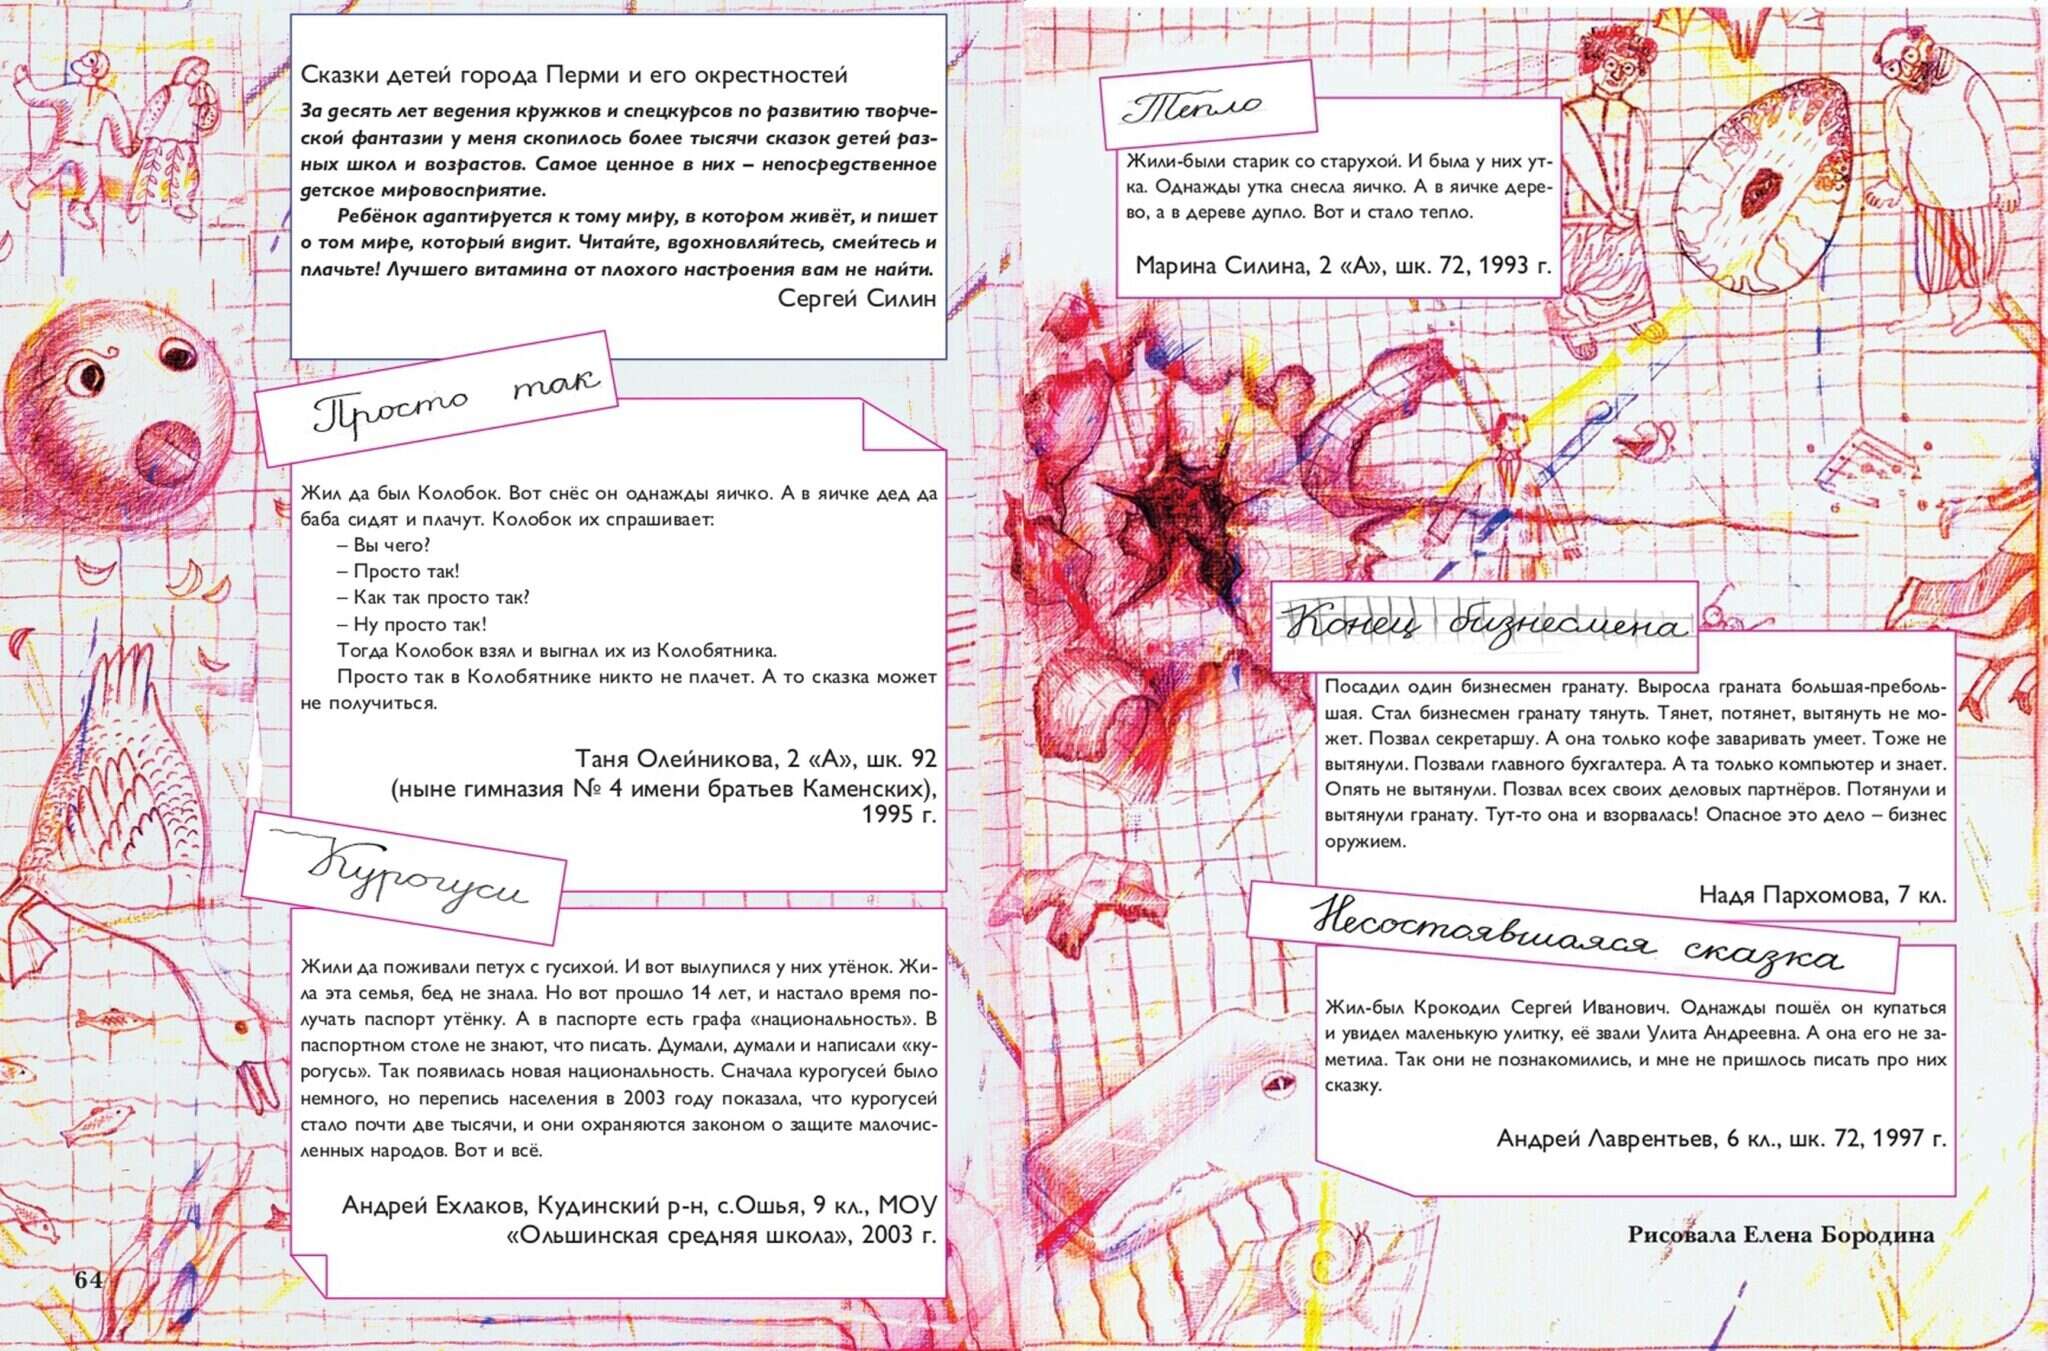 Сказки детей города Перми и его окрестностей
За десять лет ведения кружков и спецкурсов по развитию творче-
ской фантазии у меня скопилось более тысячи сказок детей раз-
ных школ и возрастов. Самое ценное в них – непосредственное
детское мировосприятие.
Ребёнок адаптируется к тому миру, в котором живёт, и пишет
о том мире, который видит. Читайте, вдохновляйтесь, смейтесь и
плачьте! Лучшего витамина от плохого настроения вам не найти.
Сергей Силин
Просто так
Жил да был Колобок. Вот снёс он однажды яичко. А в яичке дед да
баба сидят и плачут. Колобок их спрашивает:
– Вы чего?
– Просто так!
– Как так просто так?
– Ну просто так!
Тогда Колобок взял и выгнал их из Колобятника.
Просто так в Колобятнике никто не плачет. А то сказка может
не получиться.
Таня Олейникова, 2 «А», шк. 92
(ныне гимназия № 4 имени братьев Каменских),
1995 г.
Курогуси
Жили да поживали петух с гусихой. И вот вылупился у них утёнок. Жи-
ла эта семья, бед не знала. Но вот прошло 14 лет, и настало время по-
лучать паспорт утёнку. А в паспорте есть графа «национальность». В
паспортном столе не знают, что писать. Думали, думали и написали «ку-
рогусь». Так появилась новая национальность. Сначала курогусей было
немного, но перепись населения в 2003 году показала, что курогусей
стало почти две тысячи, и они охраняются законом о защите малочис-
ленных народов. Вот и всё.
Андрей Ехлаков, Кудинский р-н, с.Ошья, 9 кл., МОУ
«Ольшинская средняя школа», 2003 г.
64
Тепло
Жили-были старик со старухой. И была у них ут-
ка. Однажды утка снесла яичко. А в яичке дере-
во, а в дереве дупло. Вот и стало тепло.
Марина Силина, 2 «А», шк. 72, 1993 г.
Конец бизнесмена
Посадил один бизнесмен гранату. Выросла граната большая-преболь-
шая. Стал бизнесмен гранату тянуть. Тянет, потянет, вытянуть не мо-
жет. Позвал секретаршу. А она только кофе заваривать умеет. Тоже не
вытянули. Позвали главного бухгалтера. А та только компьютер и знает.
Опять не вытянули. Позвал всех своих деловых партнёров. Потянули и
вытянули гранату. Тут-то она и взорвалась! Опасное это дело – бизнес
оружием.
Надя Пархомова, 7 кл.
Несостоявшаяся сказка
Жил-был Крокодил Сергей Иванович. Однажды пошёл он купаться
и увидел маленькую улитку, её звали Улита Андреевна. А она его не за-
метила. Так они не познакомились, и мне не пришлось писать про них
сказку.
Андрей Лаврентьев, 6 кл., шк. 72, 1997 г.
Рисовала Елена Бородина